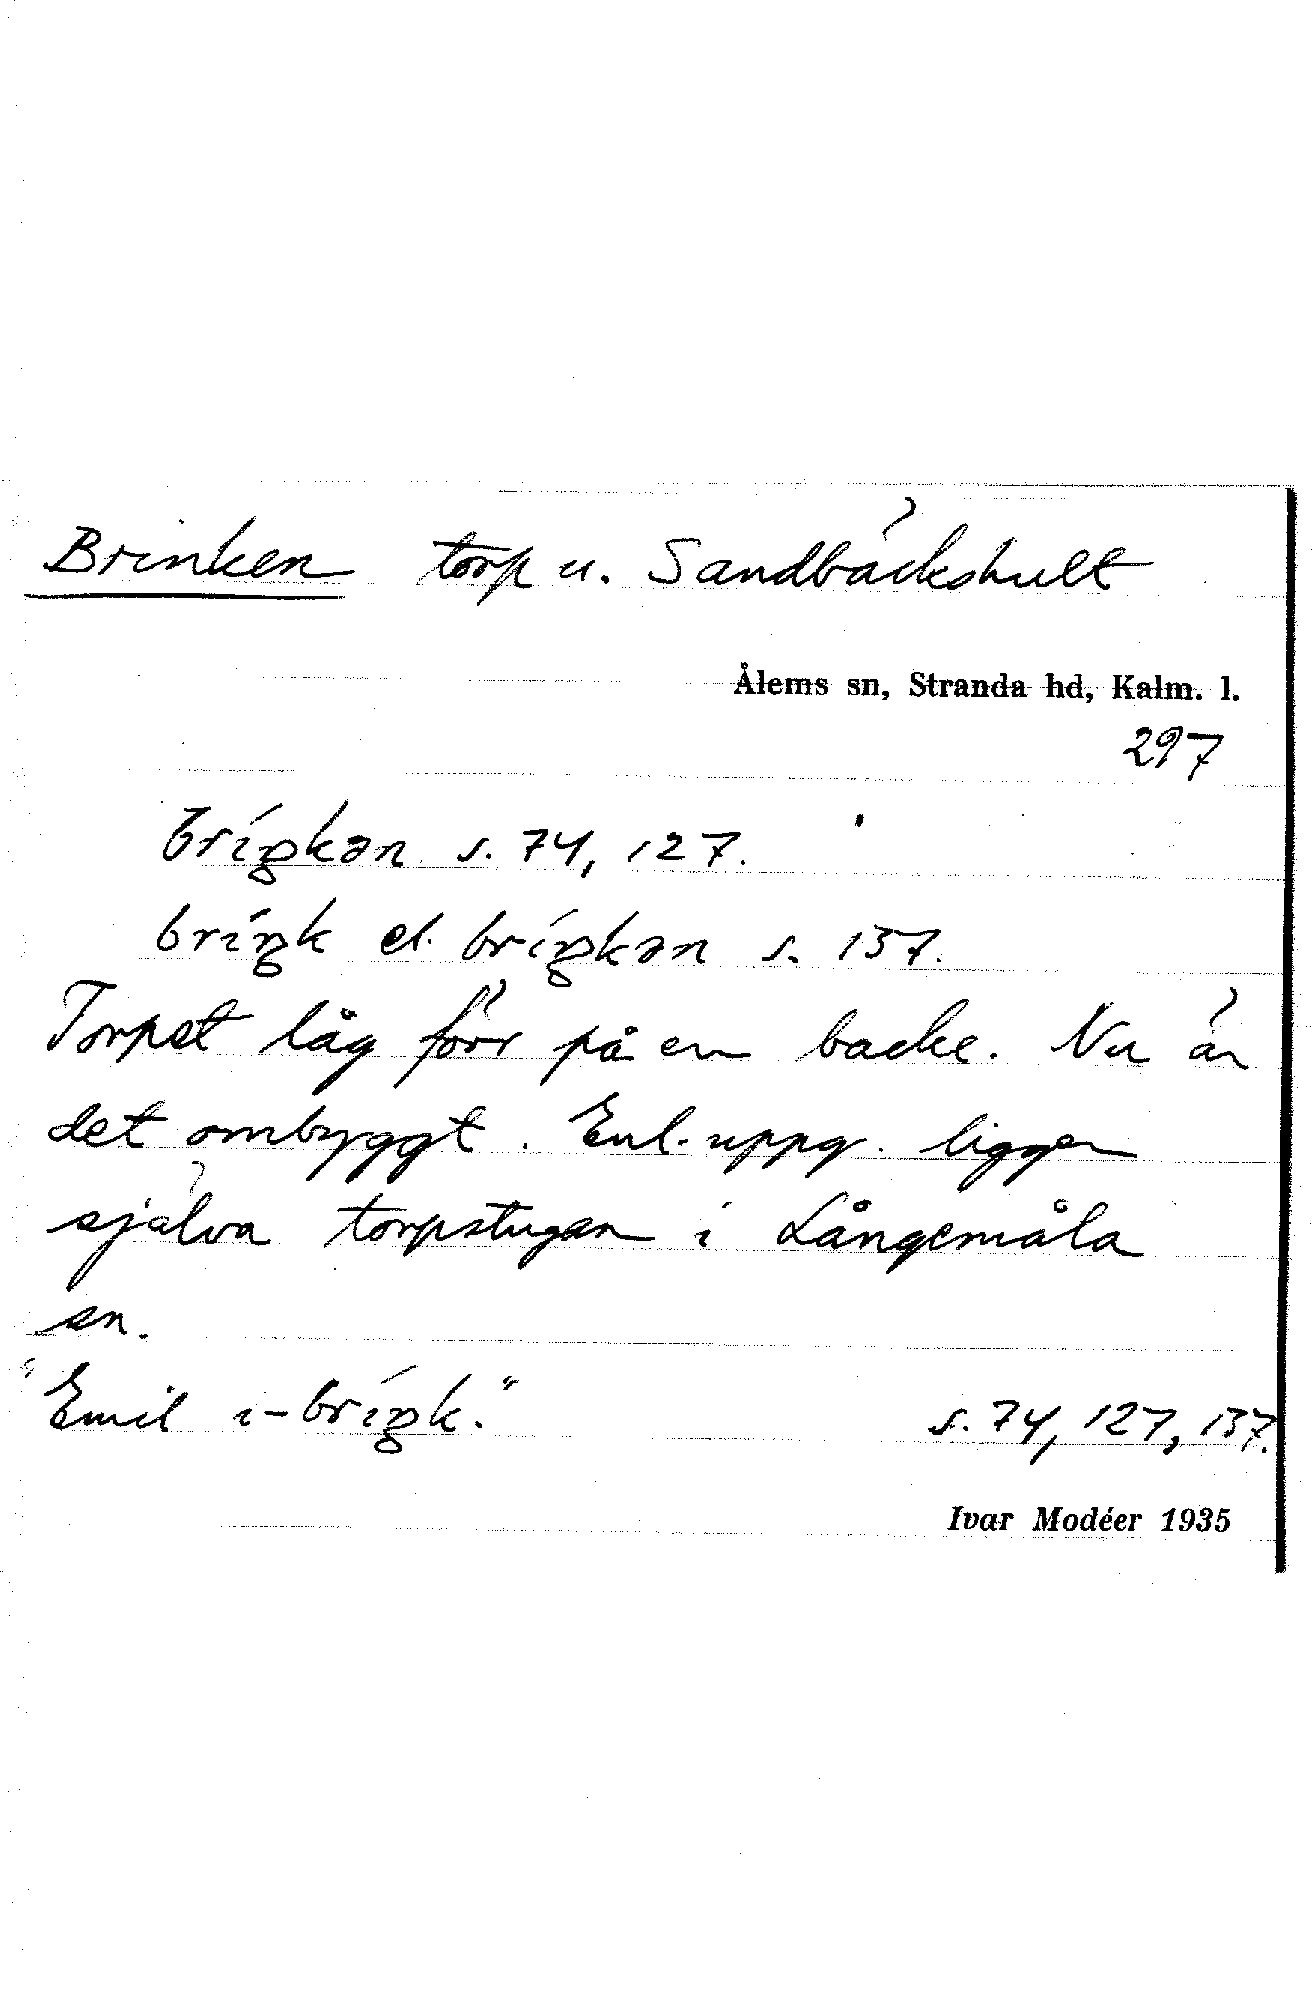 Brinken torp u. Sandbäckshult
Ålems sn, Stranda hd, Kalm. l.
297
bríŋkən s. 74, 127.
bríŋk el. bríŋkən s. 137.
Torpet låg förr på en backe. Nu är
det ombyggt. Enl. uppg. ligger
själva torpstugan i Långemåla
sn.
"Emil i-bríŋk."
s. 74, 127, 137.
Ivar Modéer 1935